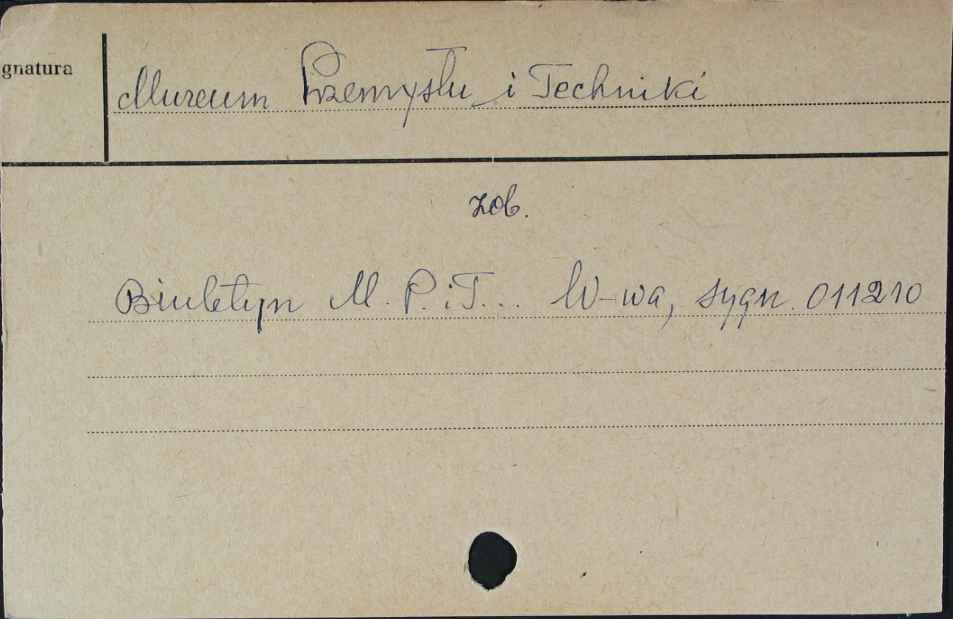 gnatura
Muzeum Przemysłu i Techniki
zob.
Biuletyn M. P. i T... W-wa, sygn. 011210